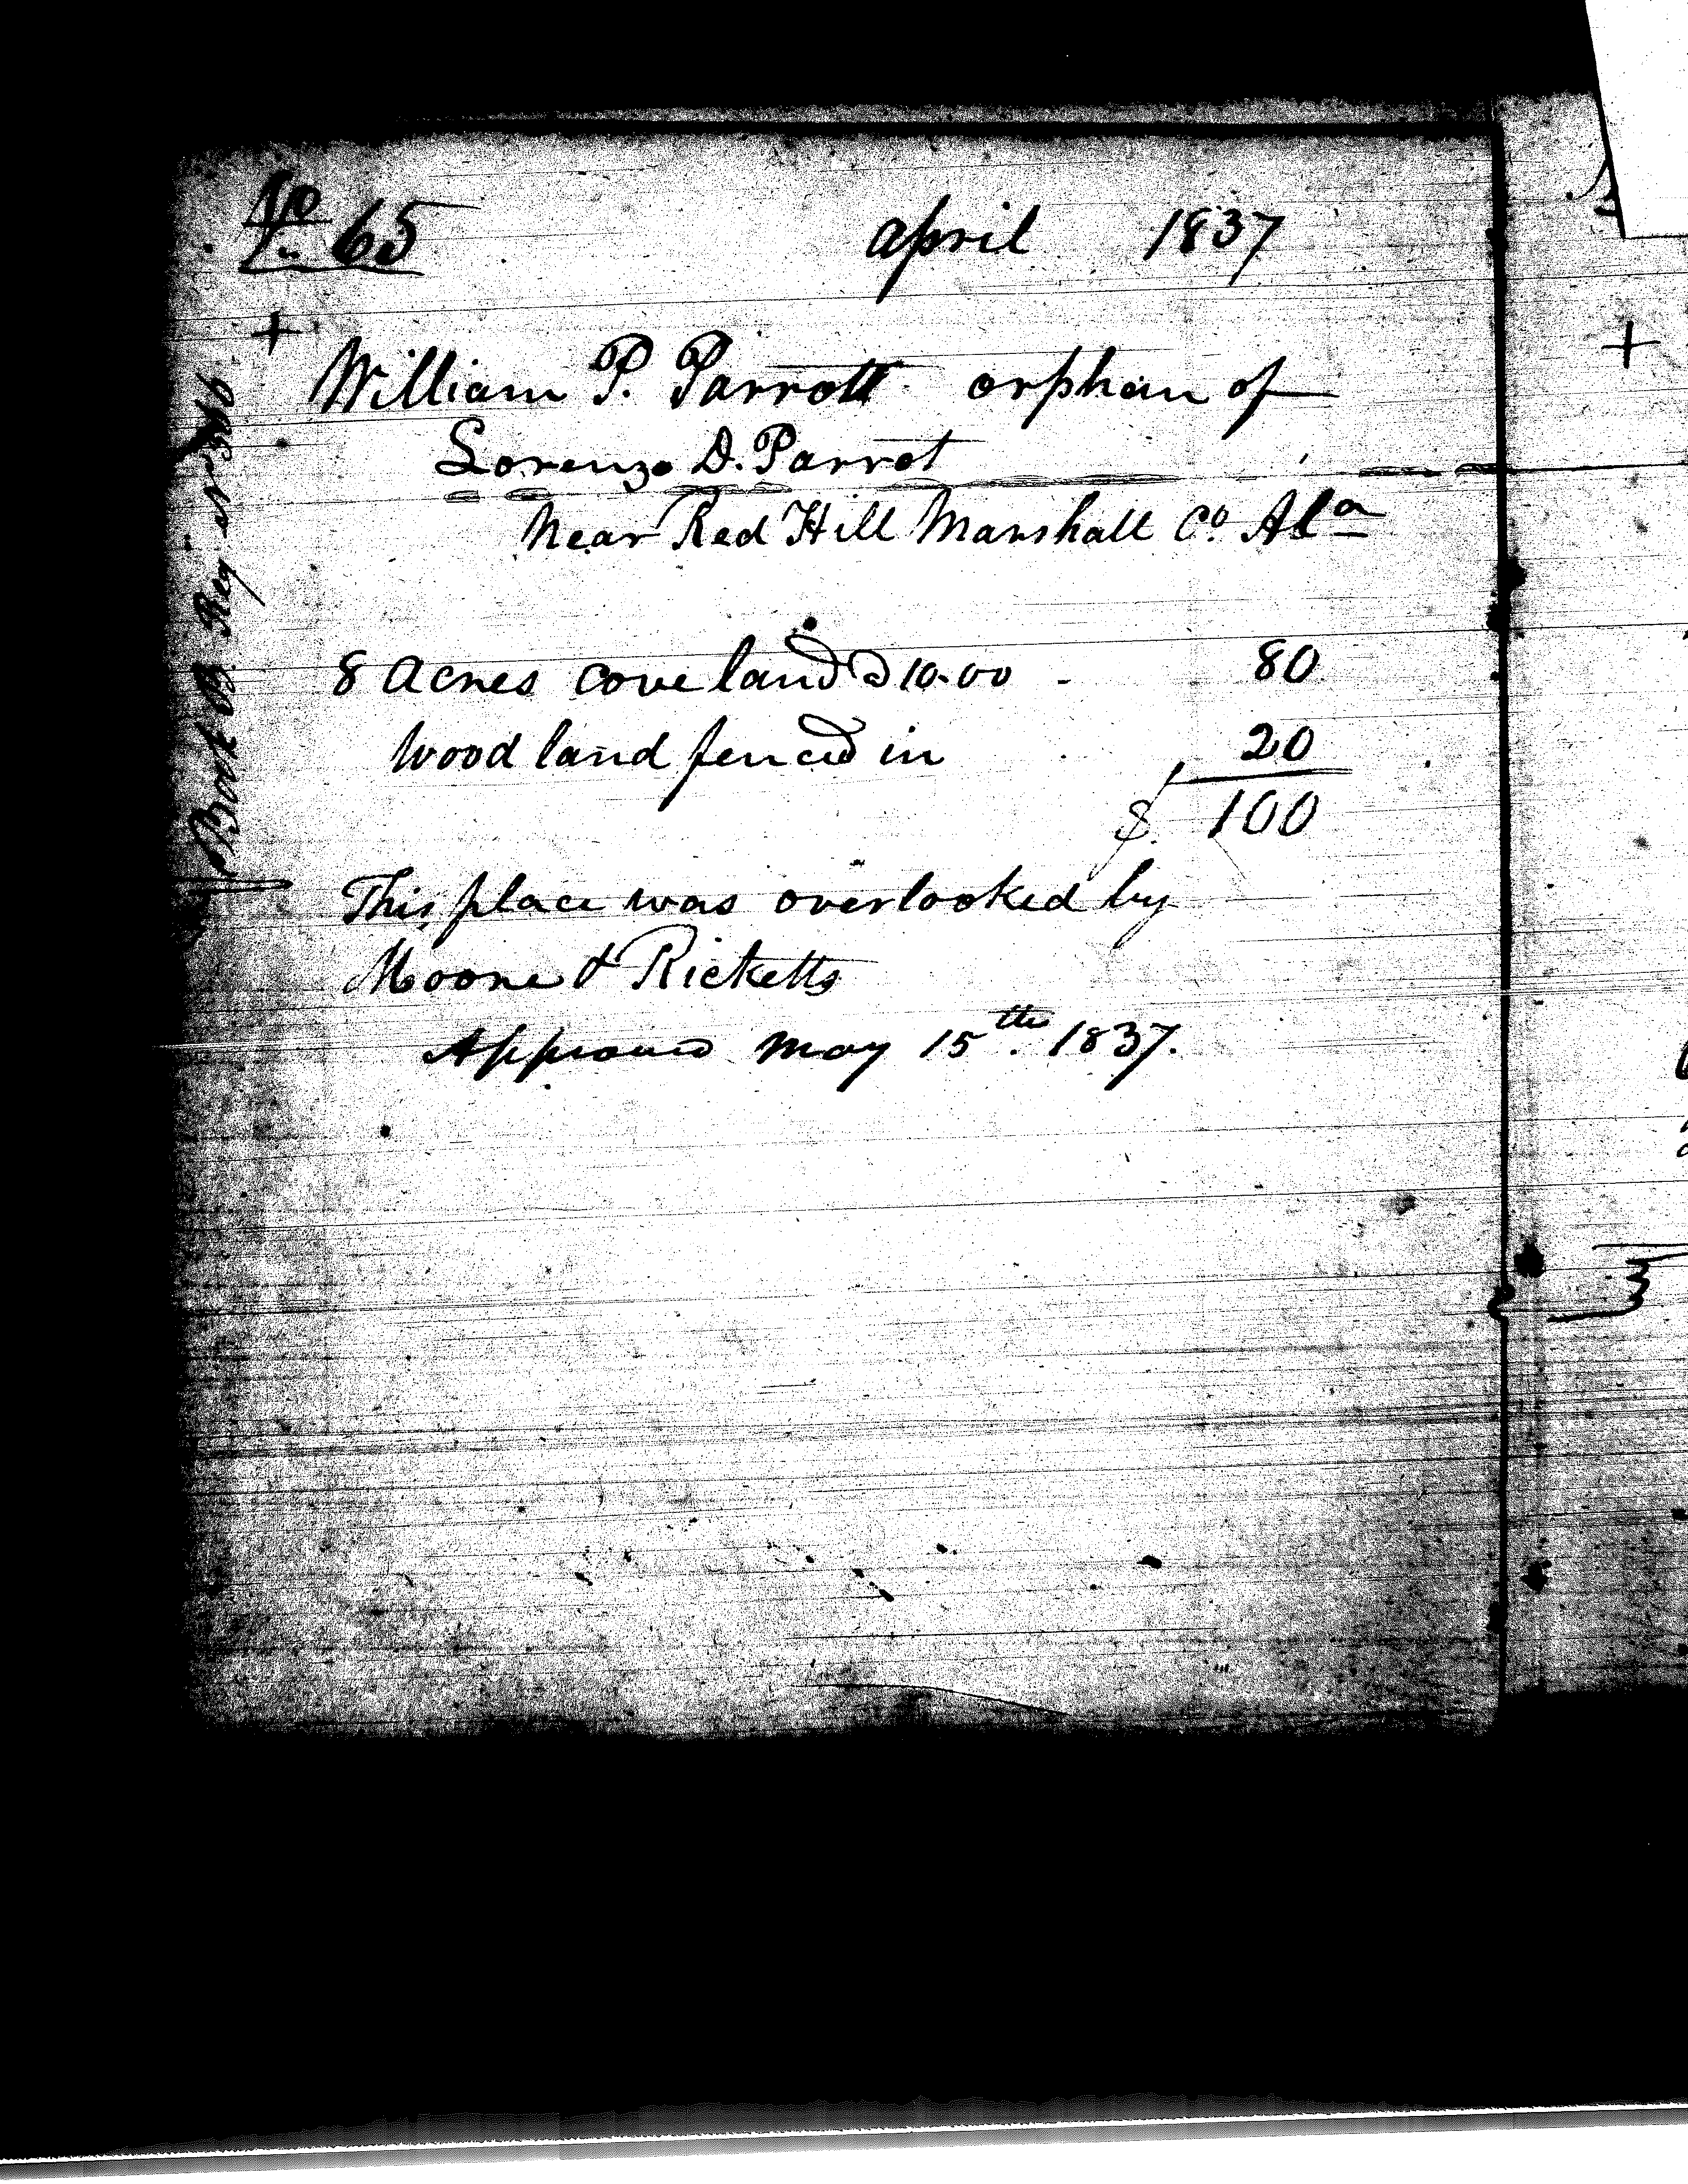 No 65 april 1837
+
William P. Parrott orphan of
Lorenzo D. Parrot
Near Red Hill Marshall Co. Ala
8 Acres cove land @ 10.00 - 80
Wood land fenced in 20
$ 100
This place was overlooked by
Moore & Ricketts
Approved May 15th. 1837.
Book B Reg
+